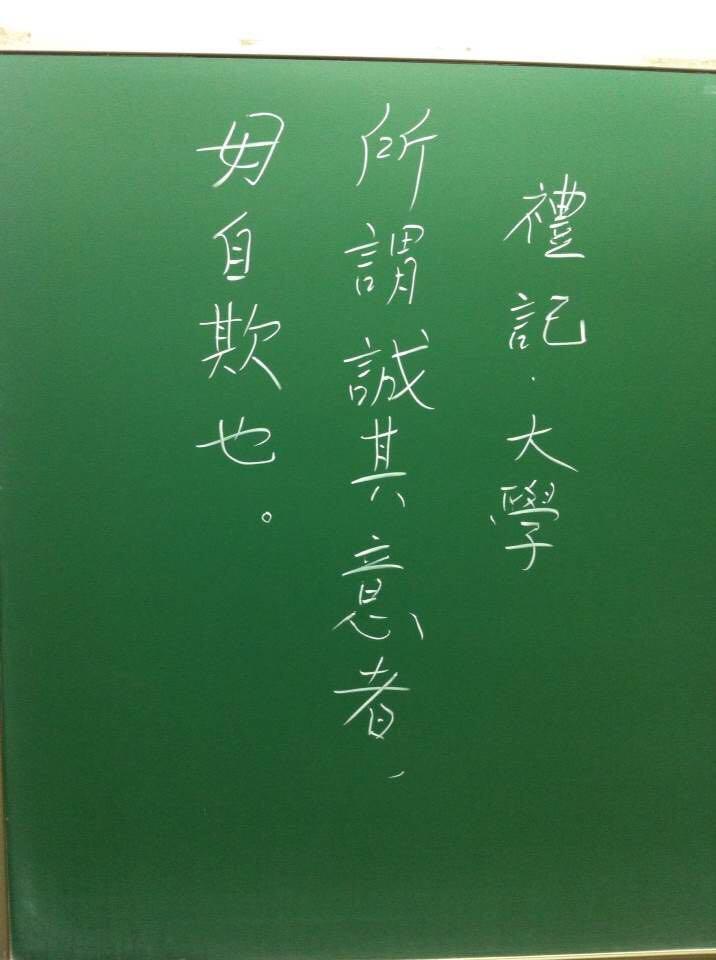 禮記.大學
所謂誠其意者，
毋自欺也。